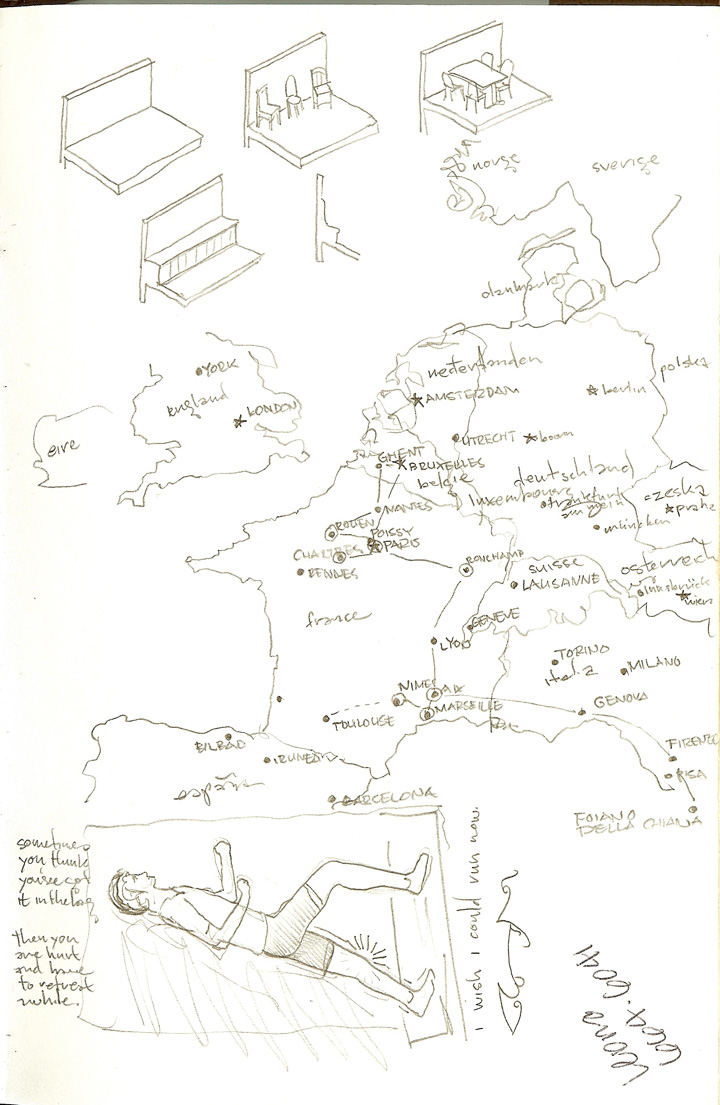 norge
sverige
danmark
YORK
england
LONDON
eire
nederlanden
AMSTERDAM
berlin
polska
UTRECHT
bonn
GHENT
BRUXELLES
belgie
deutschland
luxembourg
frankfurt
am mein
czeska
prahe
NANTES
ROUEN
POISSY
PARIS
CHARTRES
RENNES
münchen
RONCHAMP
SUISSE
LAUSANNE
österreich
innsbrück
wien
france
GENEVE
LYON
TORINO
MILANO
NIMES
AIX
MARSEILLE
GENOVA
TOULOUSE
BILBAO
IRUNEA
FIRENZE
PISA
españa
BARCELONA
FOIANO
DELLA CHIANA
sometimes
you think
you've got
it in the bag
then you
are hurt
and have
to retreat
awhile.
I wish I could run now.
664.6041